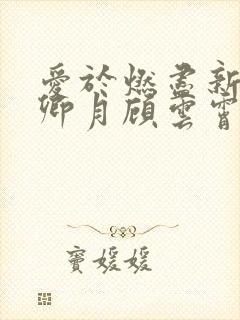 愛於燃盡新
卿月顧雲霄
竇媛媛